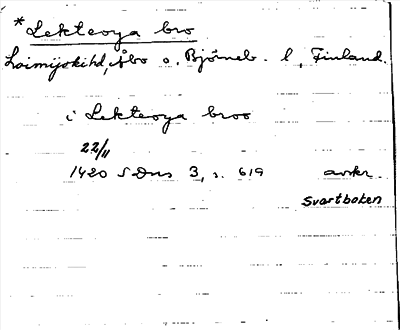 * Lekteoya bro
Loimijoki hd, Åbo o. Björneb. l, Finland.
i Lekteoya broo
22/11
1420 SDns 3, s. 619 avskr.
Svartboken